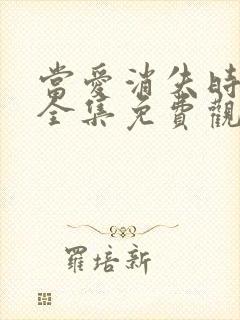 當愛消失時
全集免費觀
羅培新